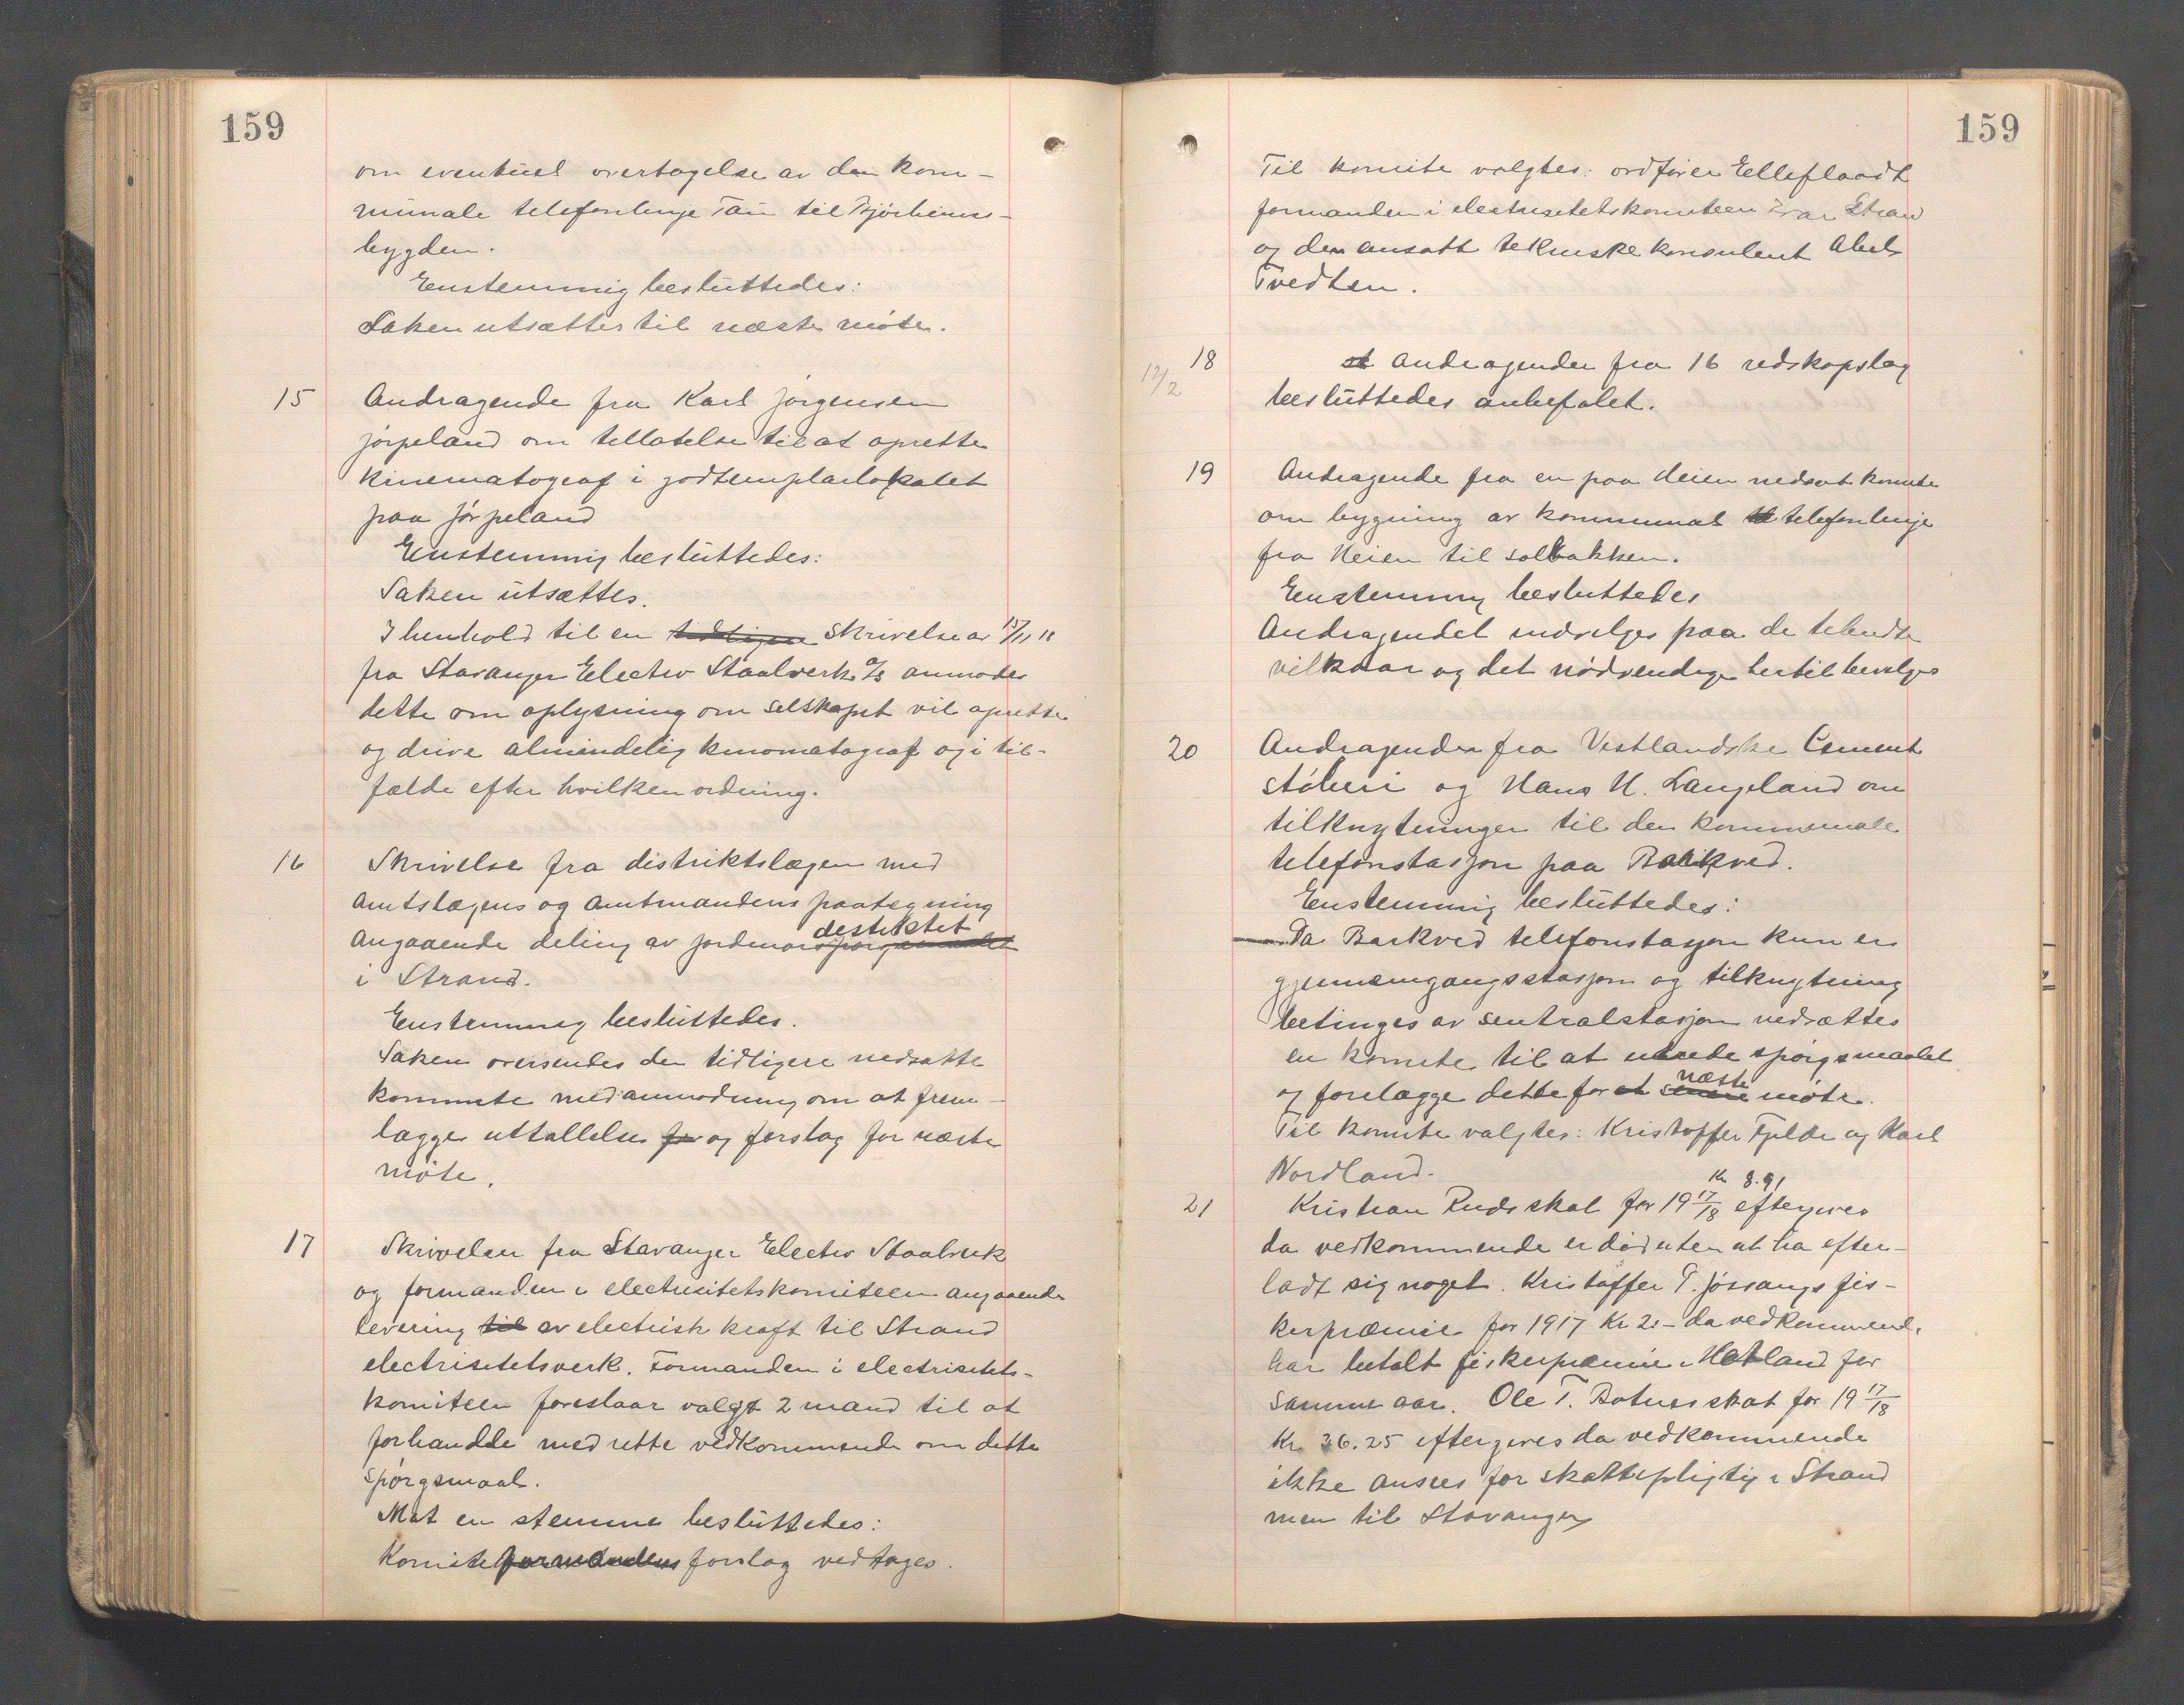 159
om eventuel overtagelse av den kom-
munale telefonlinje Tau til Bjørheims-
bygden.
Enstemmig besluttedes:
Saken utsættes til næste møte.
15 Andragende fra Karl Jørgensen
Jørpeland om tillatelse til at oprette
kinematograf i godtemplarlokalet
paa Jørpeland
Enstemmig besluttedes:
Saken utsættes.
I henhold til en tidligere skrivelse av 15/11 18
fra Stavanger Electro Staalverk A/S anmodes
dette om oplysning om selskapet vil oprette
og drive almindelig kinomatograf og i til-
fælde efter hvilken ordning.
16 Skrivelse fra distriktslægen med
amtslægens og amtmandens paategning
angaaende deling av jordmorspørgsmaalet distriktet
i Strand.
Enstemmig besluttedes.
Saken oversendes den tidligere nedsatte
kommite med anmodning om at frem-
lægge uttallelse for og forslag for næste
møte.
17 Skrivelse fra Stavanger Electro Staalverk
og formanden i electrisitetskomiteen angaaende
levering til av electrisk kraft til Strand
electrisitetsverk. Formanden i electrisitets-
komiteen foreslaar valgt 2 mand til at
forhandle med rette vedkommende om dette
spørgsmaal.
Mot en stemme besluttedes:
Komiteformandens forslag vedtages.
159
Til komite valgtes: ordfører Elleflaadt
formanden i electrisitetskomiteen Ivar Strand
og den ansatt tekniske konsulent Abel
Tvedten.
18 12/2 at andragender fra 16 redskapslag
besluttedes anbefalet.
19 Andragende fra en paa Heien nedsat komite
om bygning av kommunal te telefonlinje
fra Heien til Solbakken.
Enstemmig besluttedes
Andragendet indvilges paa de tilbudte
vilkaar og det nødvendige hertil bevilges
20 Andragender fra Vestlandske Cement
støberi og Hans H. Langeland om
tilknytninger til den kommunale
telefonstasjon paa Barkved.
Enstemmig besluttedes:
Da Barkved telefonstasjon kun er
gjennemgangsstasjon og tilknytning
betinges av sentralstasjon nedsættes
en komite til at utrede spørgsmaalet
og forelægge dette for et senere næste møte.
Til komite valgtes: Kristoffer Fjelde og Karl
Nordland.
21 Kristian Ruds skat for 19 17/18 Kr 8.91 eftergives
da vedkommende er død uten at ha efter-
ladt sig noget. Kristoffer T. Jøssangs fis-
kerpræmie for 1917 Kr 2:- da vedkommend.
har betalt fiskerpræmie i Hetland for
samme aar. Ole T. Botnes skat for 19 17/18
Kr. 36.25 eftergives da vedkommende
ikke anses for skattepligtig i Strand
men til Stavanger